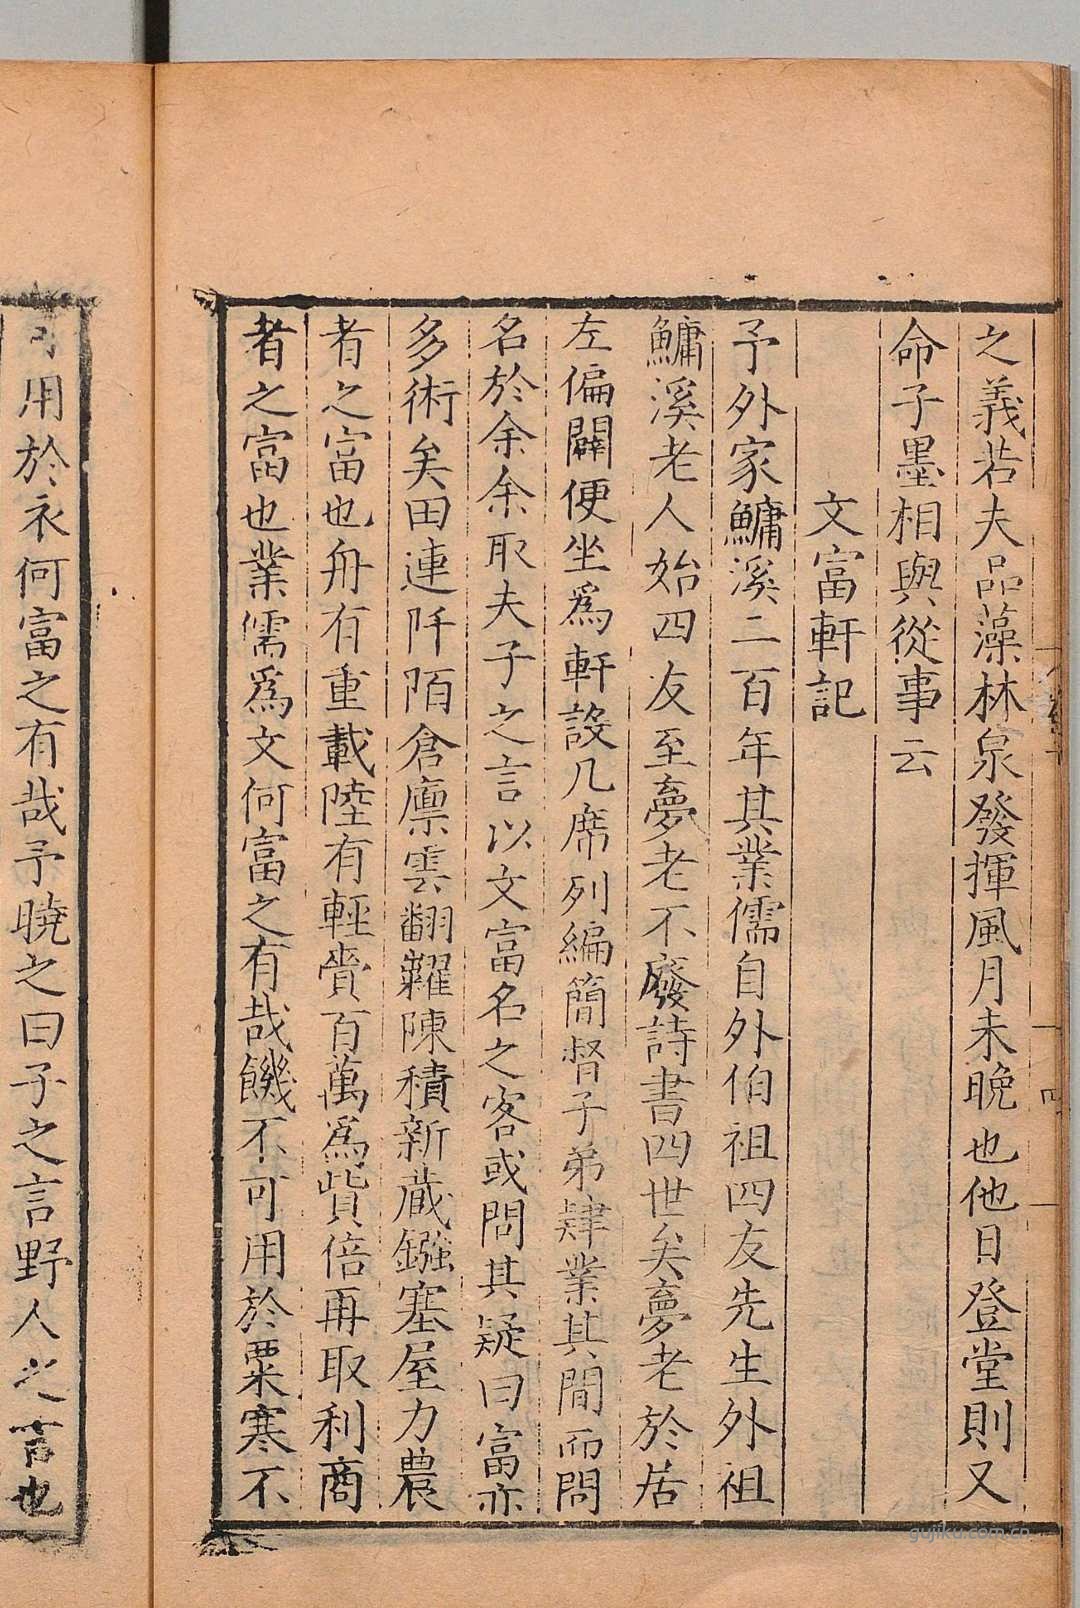 之義若夫品藻林泉發揮風月未晚也他日登堂則又
命子墨相與從事云
文富軒記
予外家鱅溪二百年其業儒自外伯祖四友先生外祖
鱅溪老人始四友至夢老不廢詩書四世矣夢老於居
左偏闢便坐爲軒設几席列編簡督子弟肄業其間而問
名於余余取夫子之言以文富名之客或問其疑曰富亦
多術矣田連阡陌倉廩雲翻糶陳積新藏鏹塞屋力農
者之富也舟有重載陸有輕賷百萬爲貲倍再取利商
者之富也業儒爲文何富之有哉饑不可用於粟寒不
可用於衣何富之有哉予曉之曰子之言野人之言也
gujiku.com.cn